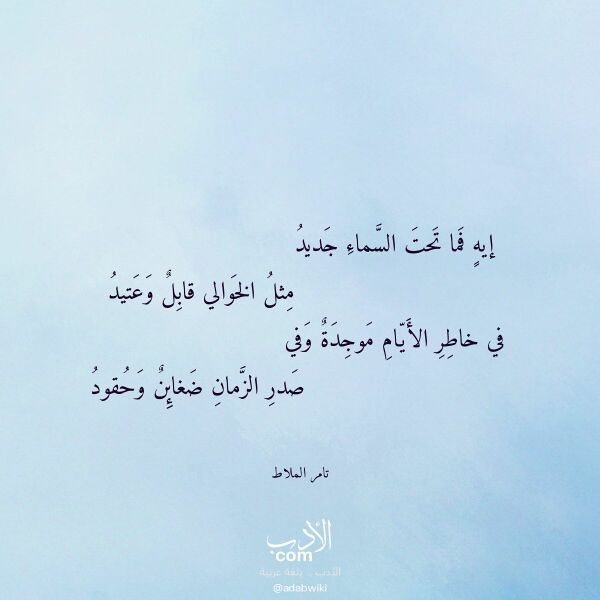 إيهٍ فَما تَحتَ السَّماءِ جَديدُ
مِثلُ الخَوالي قابِلٌ وَعَتيدُ
في خاطِرِ الأَيّامِ مَوجِدَةٌ وَفي
صَدرِ الزَّمانِ ضَغائِنٌ وَحُقودُ
تامر الملاط
الأدب
com
الأدب .. بلغة عربية
@adabwiki